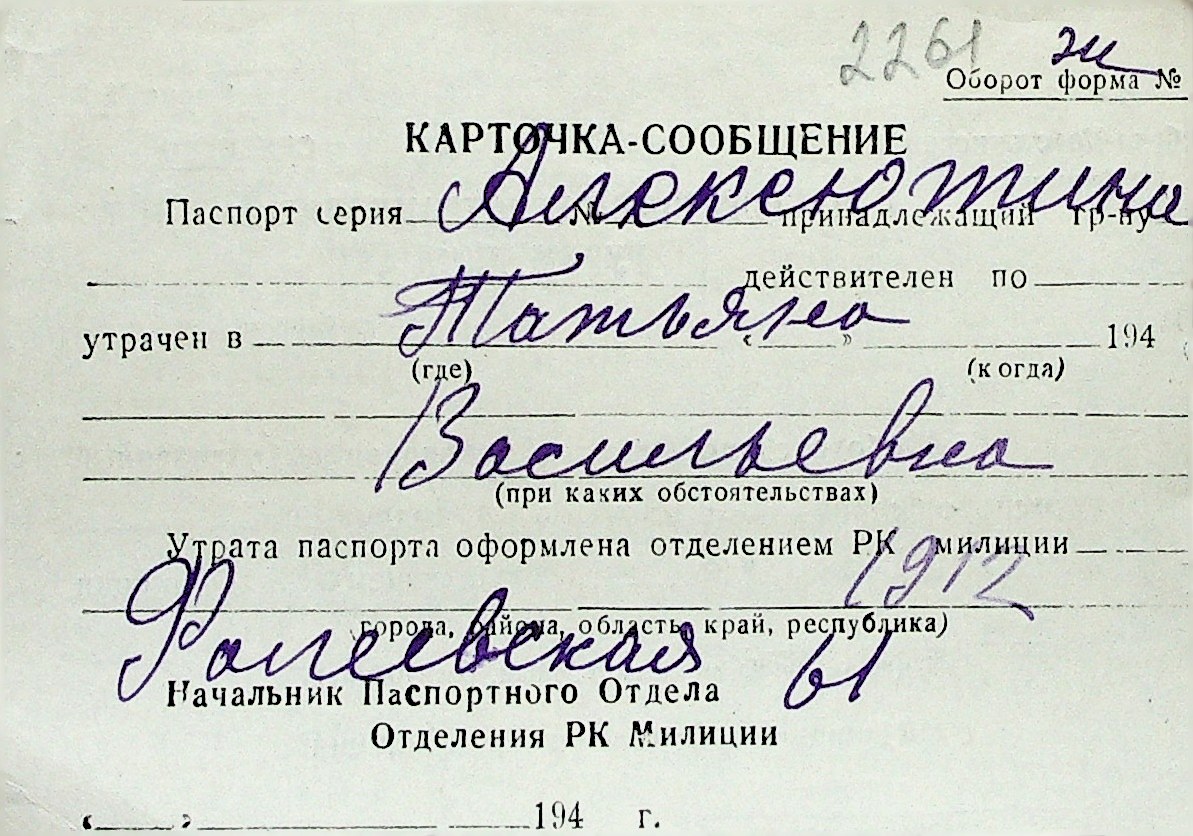 2261 ж
Оборот форма №
КАРТОЧКА-СООБЩЕНИЕ
Алексютина
Паспорт серия № принадлежащий гр-ну
действителен по
Татьяна
утрачен в « » 194
(где) (когда)
Васильевна
(при каких обстоятельствах)
Утрата паспорта оформлена отделением РК милиции
1912
города, района, область, край, республика)
61
Начальник Паспортного Отдела
Отделения РК Милиции
« » 194 г.